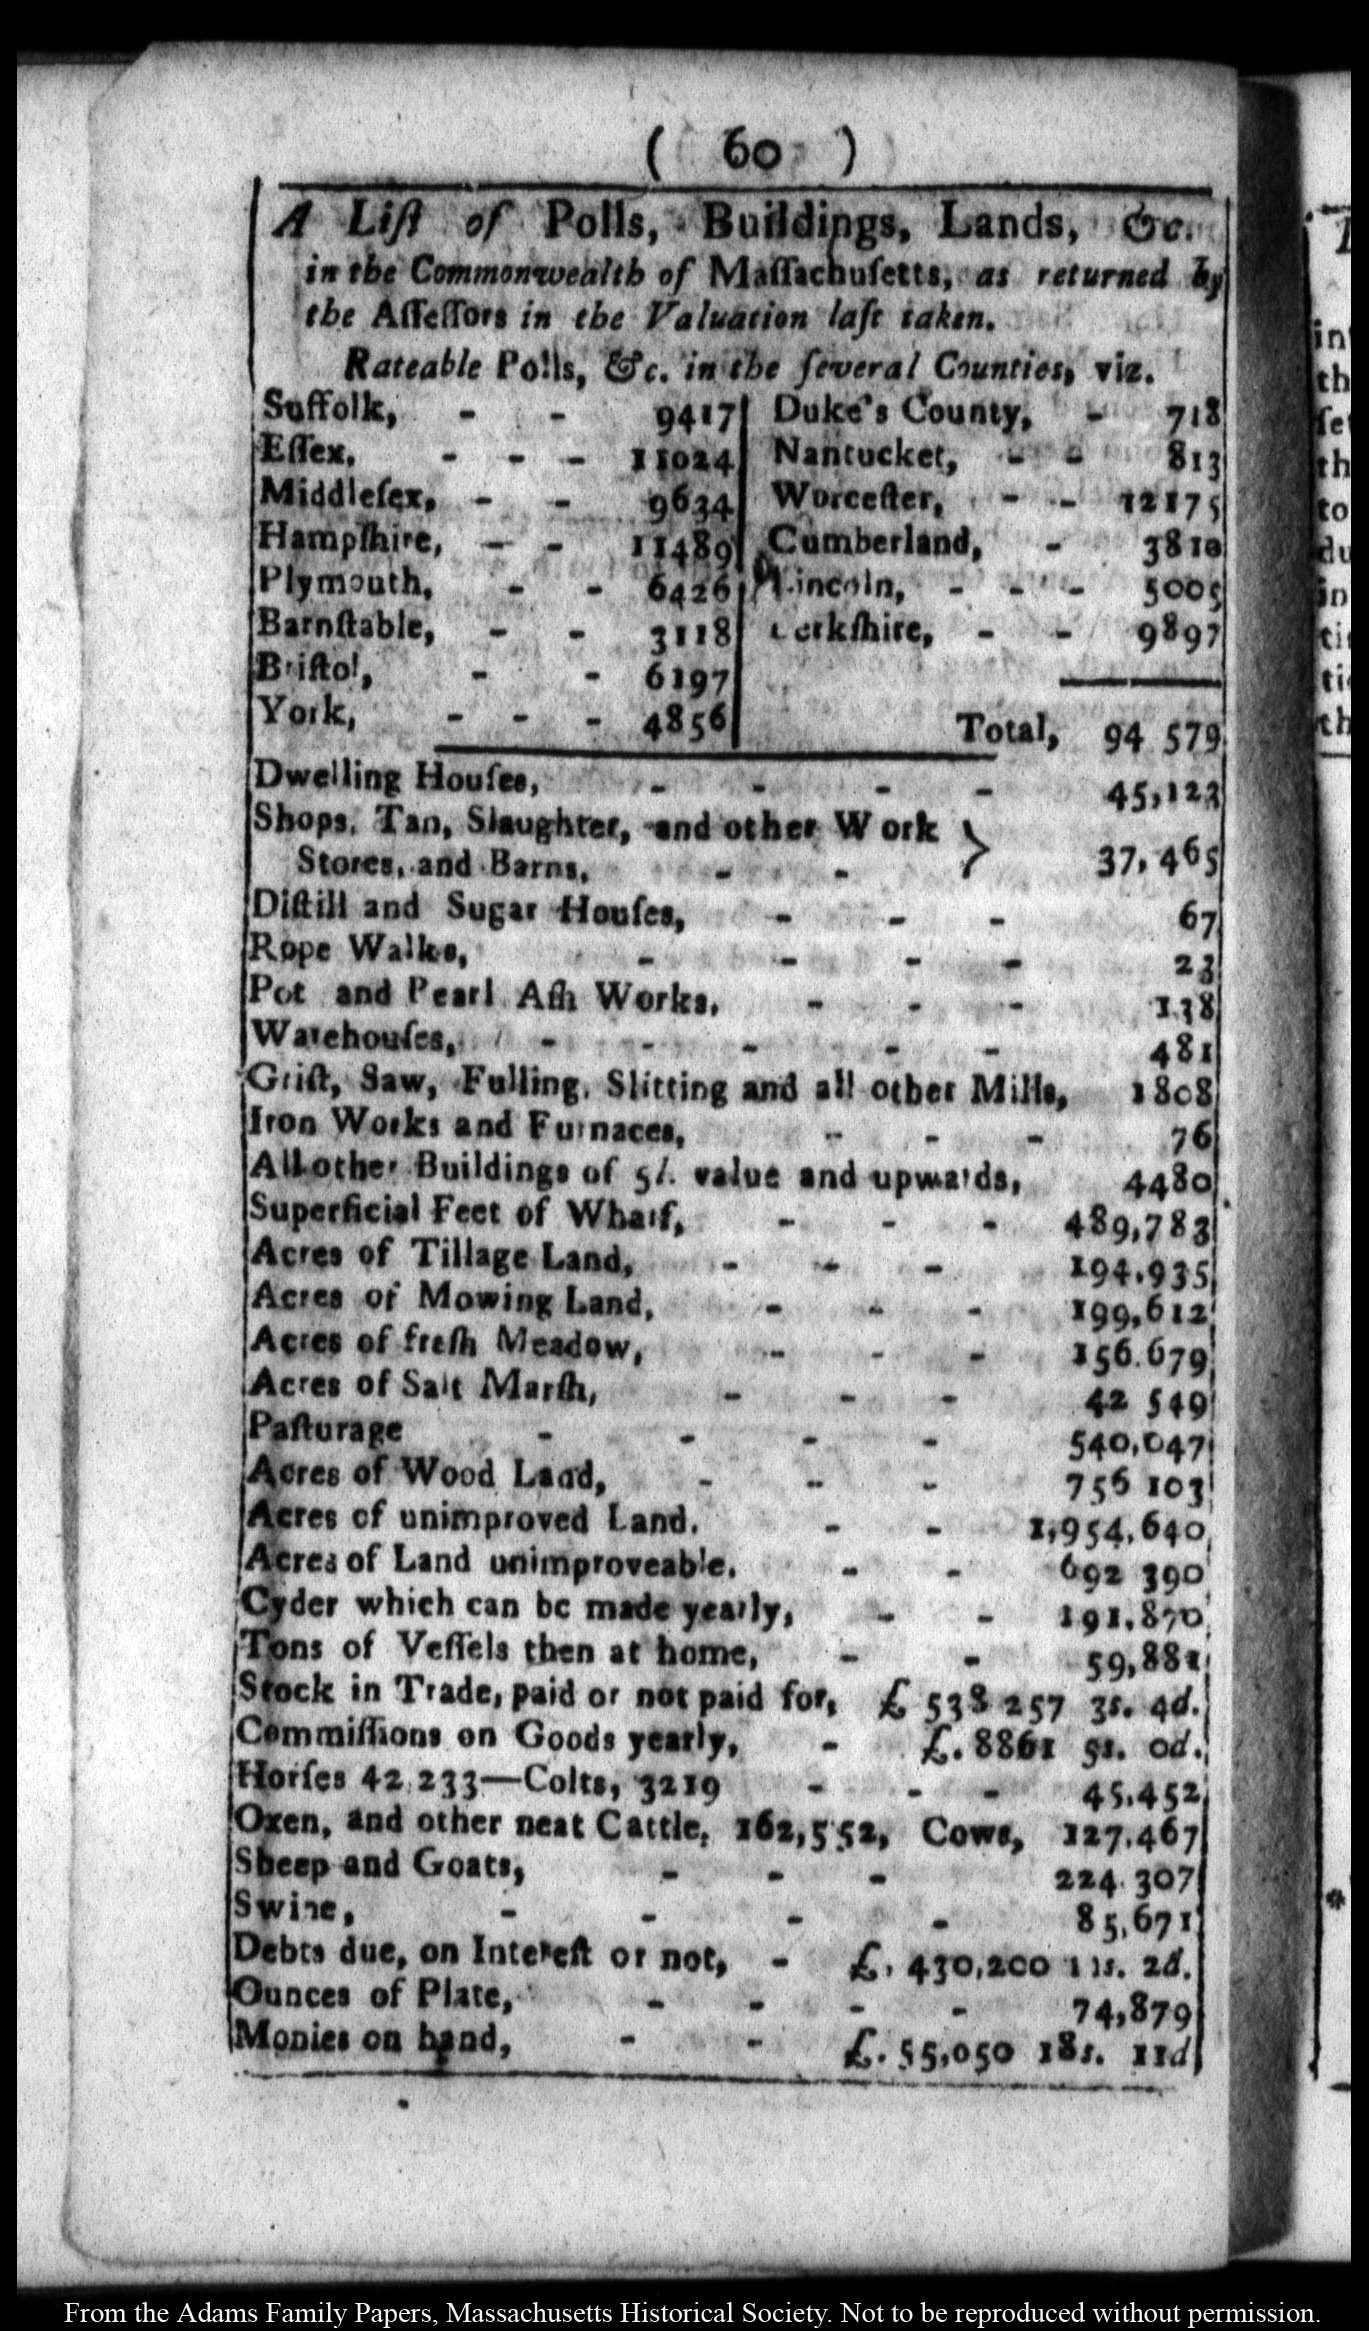 ( 60 )
A Liſt of Polls, Buildings, Lands, &c.
in the Commonwealth of Maſſachuſetts, as returned by
the Aſſeſſors in the Valuation laſt taken.
Rateable Polls, &c. in the ſeveral Counties, viz.
Suffolk, - - 9417
Eſſex, - - - 11024
Middleſex, - - 9634
Hampſhire, — - 11489
Plymouth, - - 6426
Barnſtable, - - 3118
Briſtol, - - 6197
York, - - - 4856
Duke's County, - 718
Nantucket, - - 813
Worceſter, - - 12175
Cumberland, - 3810
Lincoln, - - - 5005
Berkſhire, - - 9897
Total, 94 579
Dwelling Houſes, - - - - 45,123
Shops, Tan, Slaughter, and other Work }
Stores, and Barns, - - 37,465
Diſtill and Sugar Houſes, - - - 67
Rope Walks, - - - - 23
Pot and Pearl Aſh Works, - - - 138
Warehouſes, - - - - - 481
Griſt, Saw, Fulling, Slitting and all other Mills, 1808
Iron Works and Furnaces, - - - 76
All other Buildings of 5l. value and upwards, 4480
Superficial Feet of Wharf, - - - 489,783
Acres of Tillage Land, - - - 194.935
Acres of Mowing Land, - - - 199,612
Acres of freſh Meadow, - - - 156.679
Acres of Salt Marſh, - - - 42 549
Paſturage - - - - 540,047
Acres of Wood Land, - - - 756 103
Acres of unimproved Land. - - 1,954,640
Acres of Land unimproveable. - - 692 390
Cyder which can be made yearly, - - 191,870
Tons of Veſſels then at home, - - 59,881
Stock in Trade, paid or not paid for, £ 538 257 3s. 4d.
Commiſſions on Goods yearly, - £. 8861 5s. 0d.
Horſes 42,233—Colts, 3219 - - - 45.452
Oxen, and other neat Cattle, 162,552, Cows, 127.467
Sheep and Goats, - - - 224.307
Swine, - - - - 85,671
Debts due, on Intereſt or not, - £. 430,200 11s. 2d.
Ounces of Plate, - - - - 74,879
Monies on hand, - - £. 55,050 18s. 11d
From the Adams Family Papers, Massachusetts Historical Society. Not to be reproduced without permission.